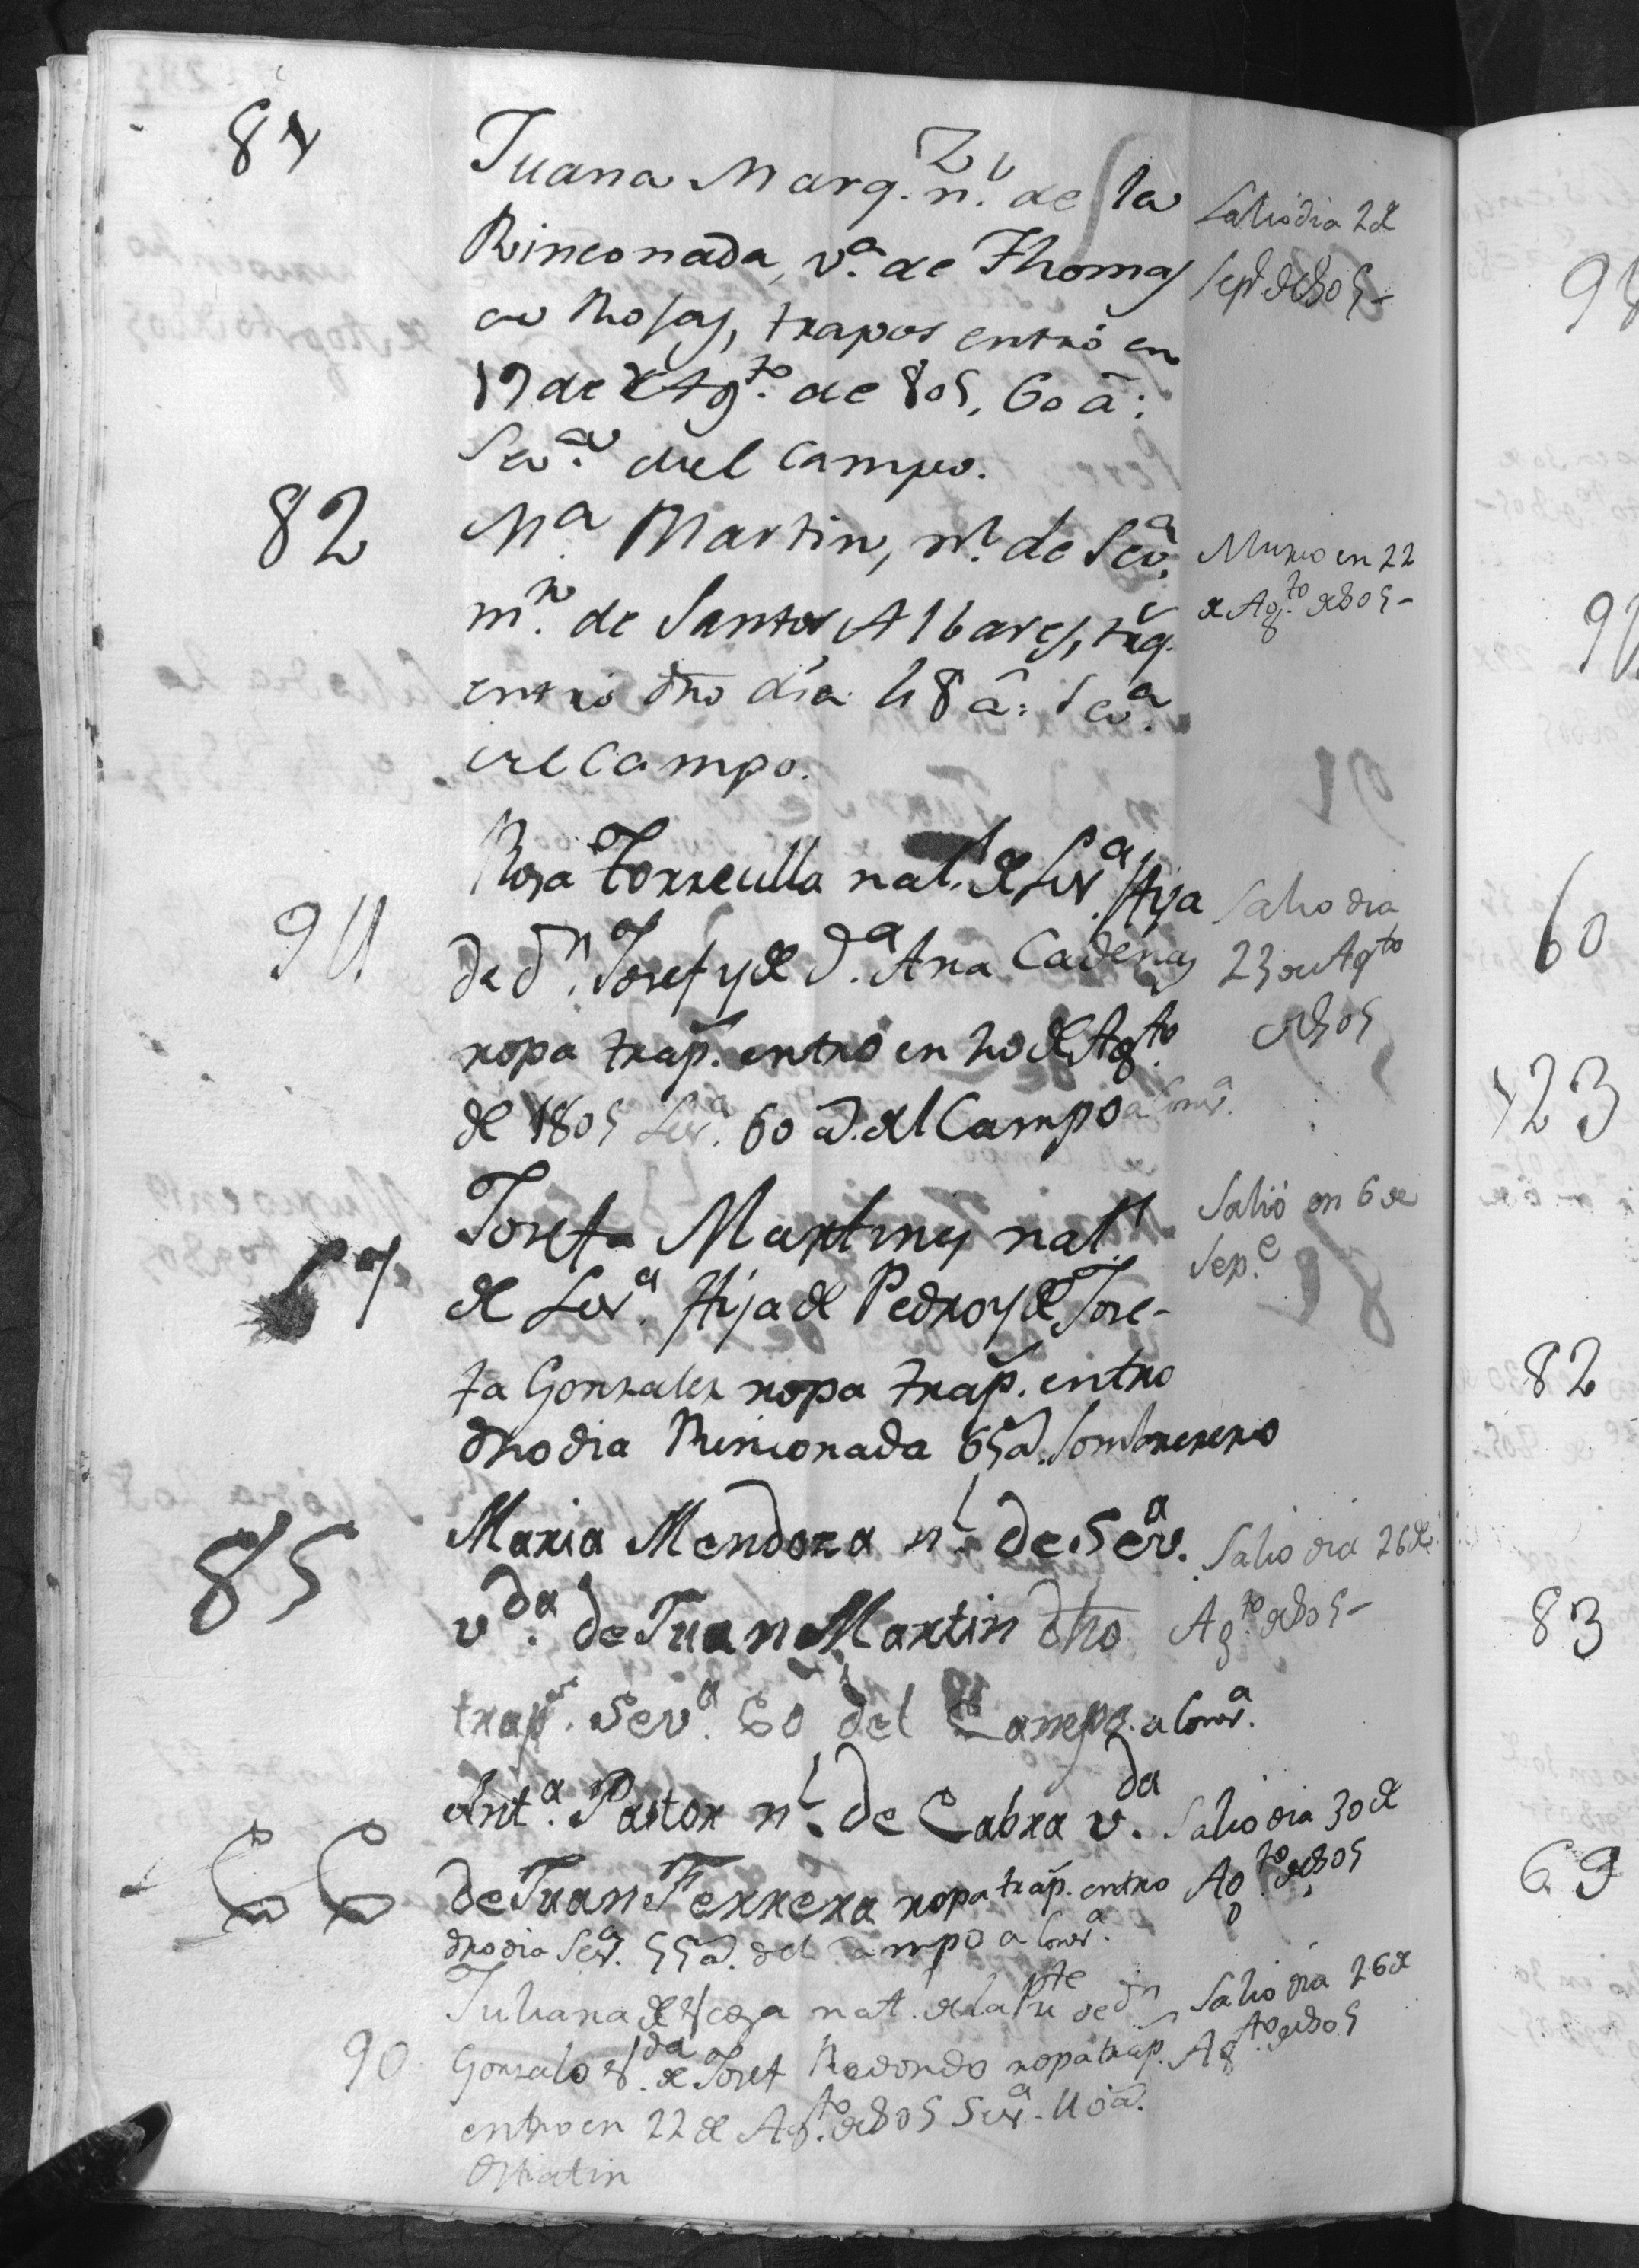 81
Juana Marq.z n.l de la
Rinconada, v.a de Thomas
de Rosas, trapos entró en
19 de Ag.to de 805, 60 a:
Sev.a del Campo.
Salió dia 2 de
Sep.e de 805-
82
M.a Martin, n.l de Sev.a
m.r de Santos Albares, trap.
entró dho dia 48 a: Sev.a
del Campo.
Murio en 22
de Ag.to de 805-
94
Rosa Torrecilla nat.l de Sev.a Hija
de d.n Josef y de d.a Ana Cadenas
ropa trap. entro en 20 de Ag.to
de 1805 Sev.a 60 a. del Campo a Conv.a
Salio dia
23 de Agto
de 805
17
Josefa Martines nat.l
de Sev.a Hija de Pedro y de Jose-
fa Gonzales ropa trap. entro
dho dia Rinconada 65 a. Sombrerero
Salió en 6 de
Sep.e
85
Maria Mendoza n.l de Sev.a
v.da de Juan Martin dho
trap.s Sev.a 60 del Campo. a Conv.a
Salio dia 26 de
Ag.to de 805-
66
Ant.a Pastor n.l de Cabra v.da
de Juan Ferrera ropa trap. entro
dho dia Sev.a 55 a. del Campo a Conv.a
Salio dia 30 de
Ag.to de 805
90
Juliana de nat. de la Pu.te de d.n
Gonzalo v.da de Josef Redondo ropa trap.
entro en 22 de Ag.to de 805 Sev.a 40 a.
Salio dia 26 de
Ag.to de 805
60
123
82
83
69